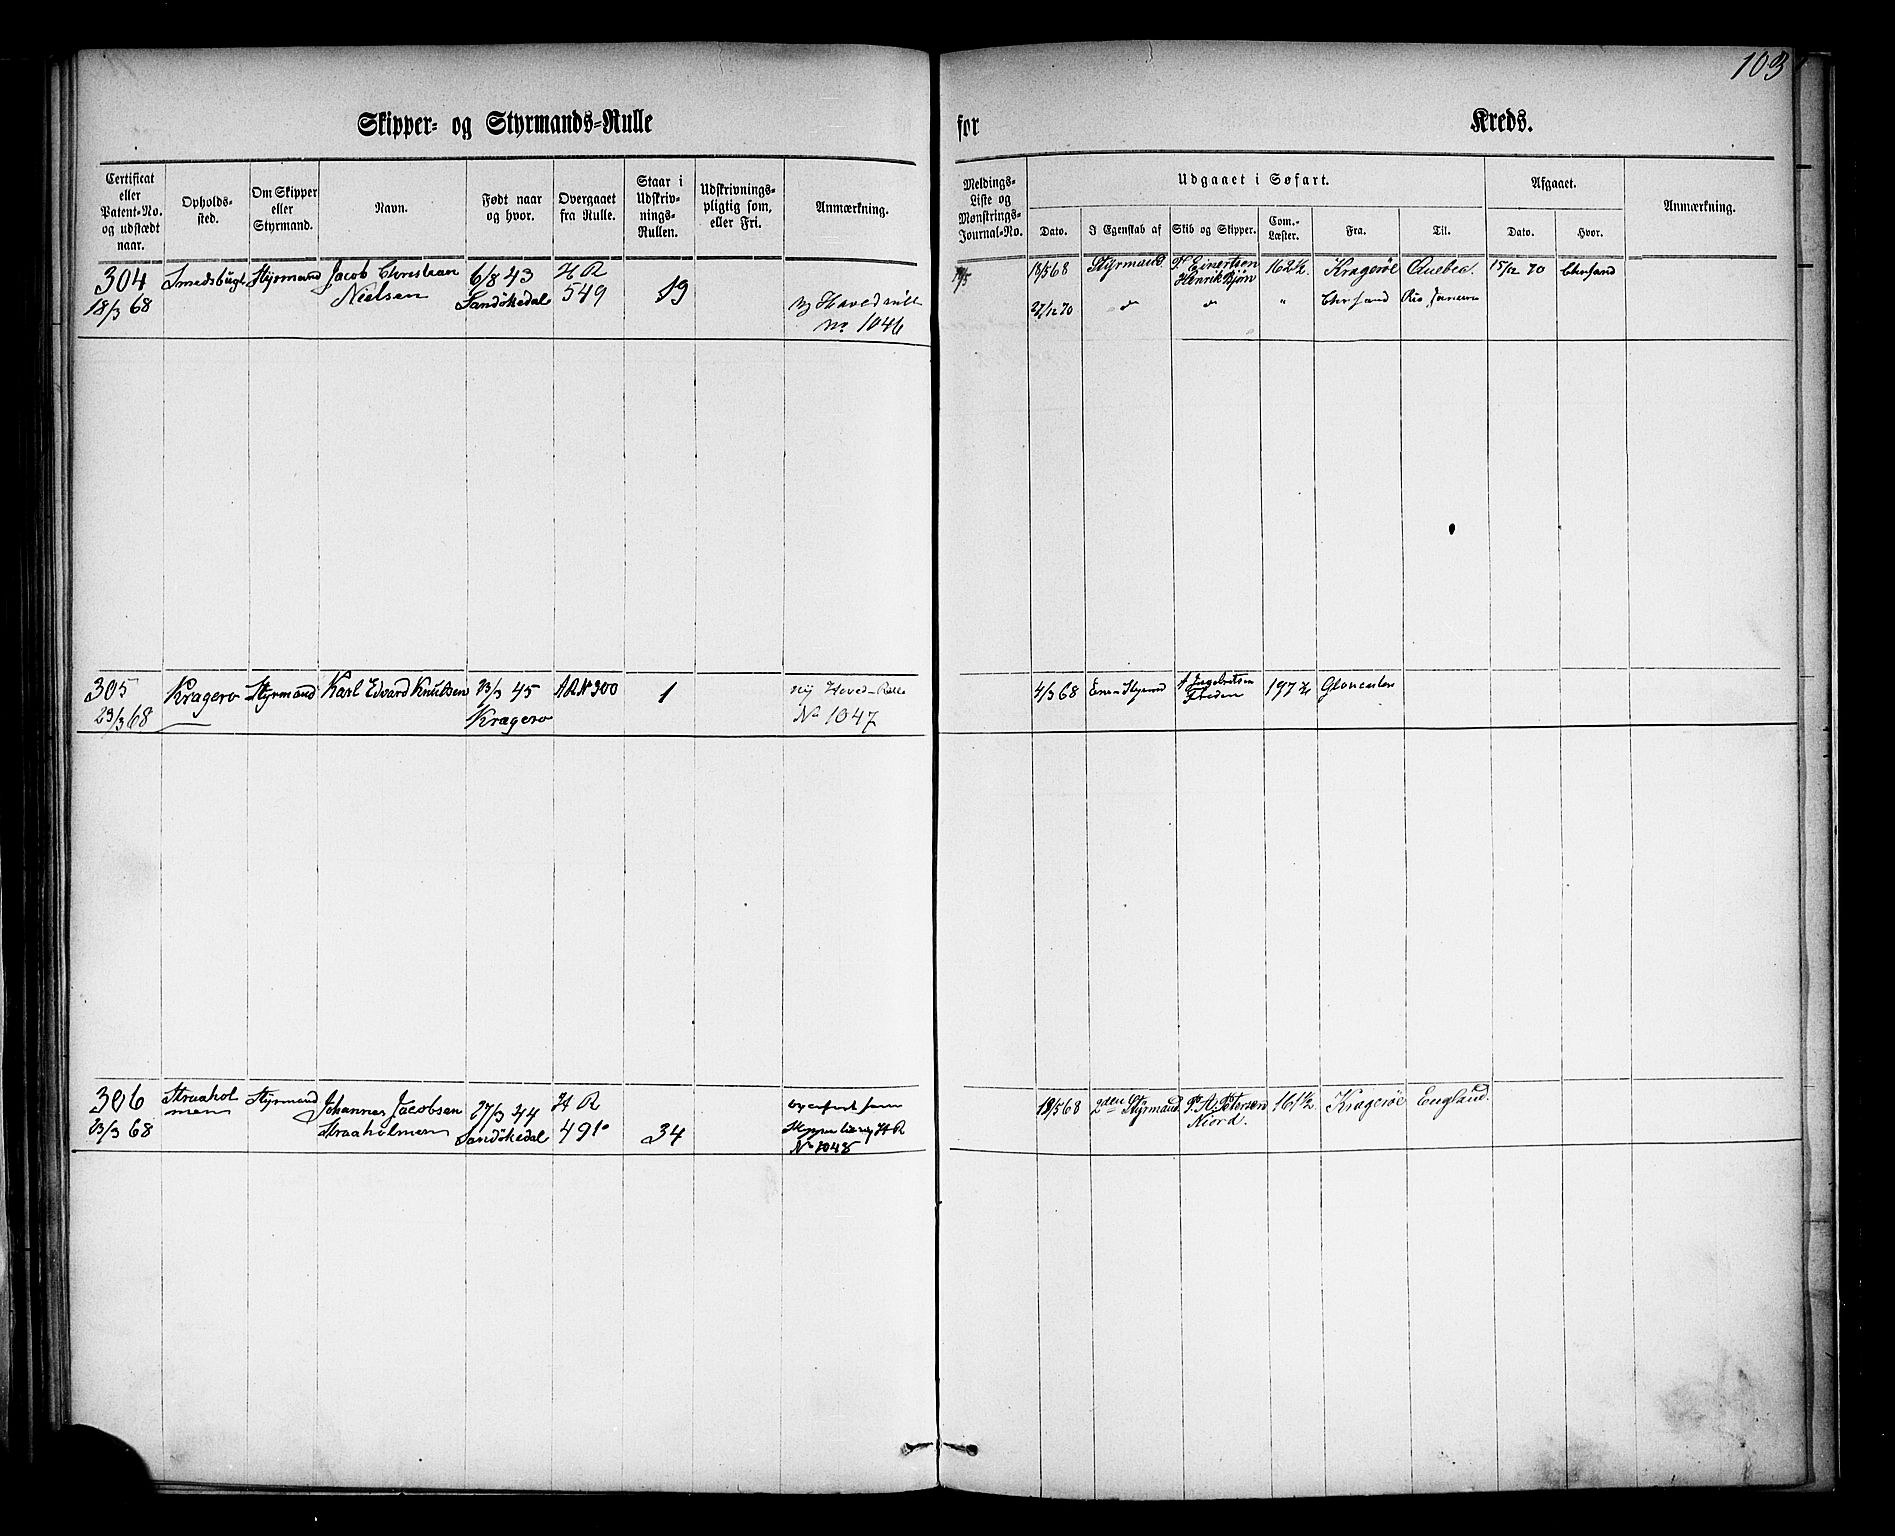 103
Skipper- og Styrmands-Rulle for Kreds.
Certificat eller Patent-No. og udstædt naar.
Opholds-sted.
Om Skipper eller Styrmand.
Navn.
Født naar og hvor.
Overgaaet fra Rulle.
Staar i Udskriv-nings-Rullen.
Udskrivnings-pligtig som, eller Fri.
Anmærkning.
Meldings-Liste og Mønstrings-Journal-No.
Udgaaet i Søfart.
Dato.
I Egenskab af
Skib og Skipper.
Com.-Læster.
Fra.
Til.
Afgaaet.
Dato.
Hvor.
Anmærkning.
304 Smedsbugt Styrmand Jacob Christian 6/8 43 H R
18/3 68 Nielsen Sandökedal 549 19
Hovedrulle
No 1046
18/5 68 Styrmand Einertsen 162½ Krageröe Quebec. 15/12 70 Chrsand
Henrik Bjørn
27/12 70 " " " Chrsand Rio Janeiro
305 Kragerø Styrmand Karl Edvard Knutsen 23/3 45 A R No 300 1 ny Hoved-Rulle
23/3 68 Kragero No 1047
4/3 68 Styrmd Ingebretsen 197½
Freden
306 Straahol Styrmand Johannes Jacobsen 27/3 44 H R
men
23/3 68 Straaholmen Sandökedal 491 34
No 1048
18/5 68 2den Styrmand A. Petersen 161½ Kragerøe England.
Niord.